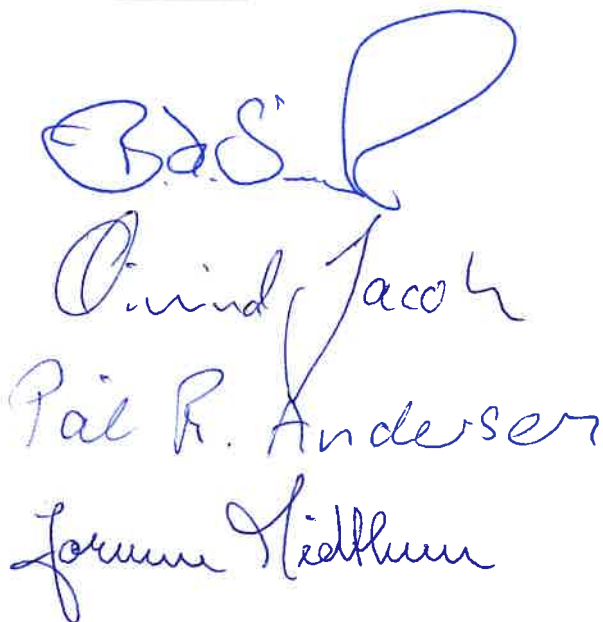 Øivind Jacob
Pål R. Andersen
Jorunn Midthun